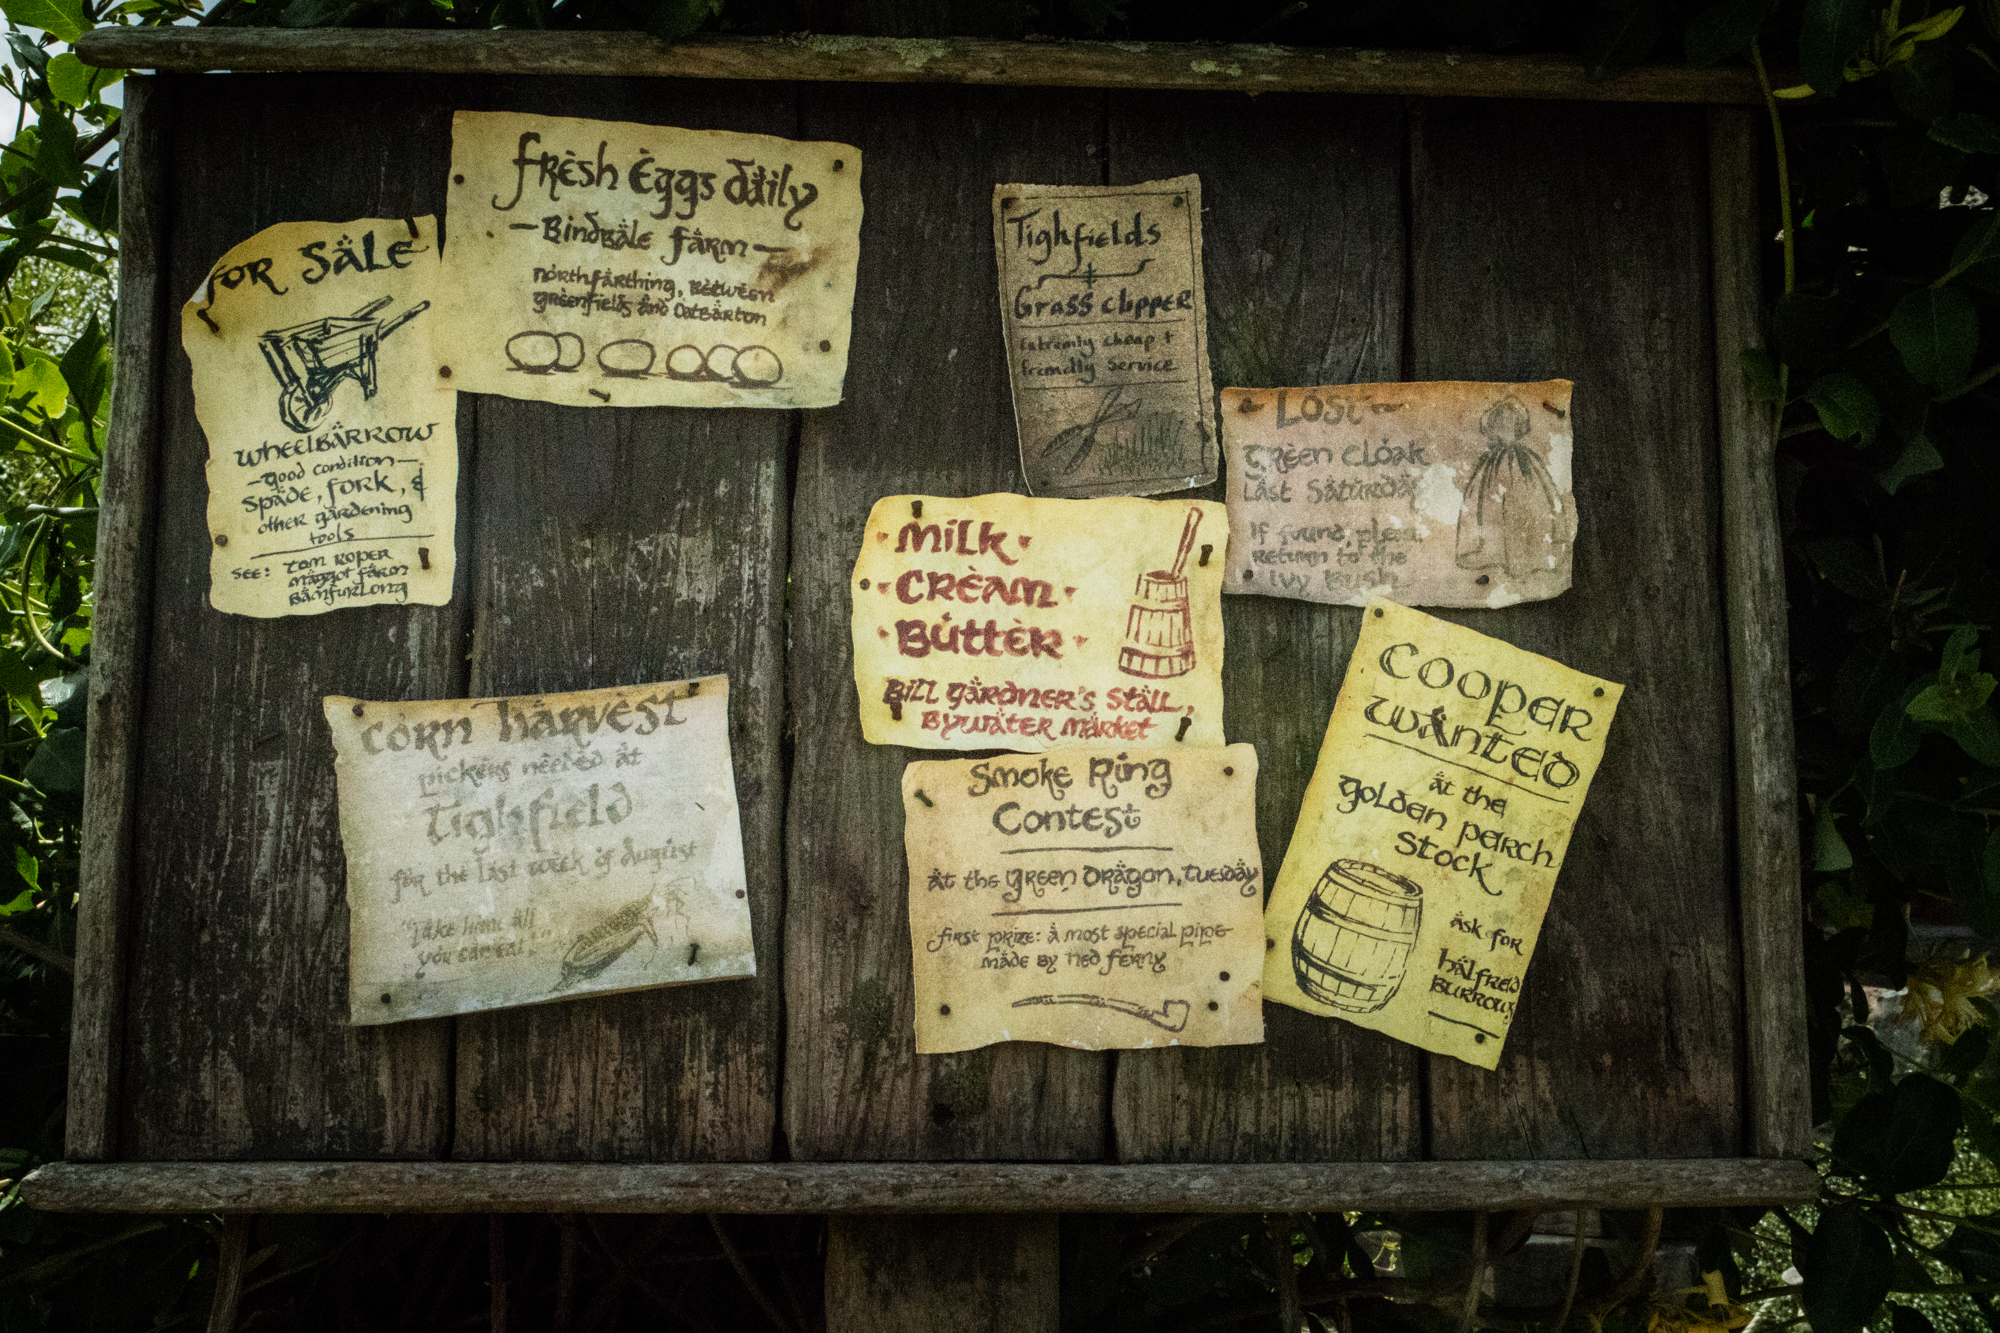 for Sale
wheelbarrow
-good condition-
Spade, fork, &
other gardening
tools
see: tom roper
maggot farm
Bamfurlong
fresh Eggs daily
-Bindbale farm-
northfarthing, between
greenfields and Oatbarton
Tighfields
+
Grass clipper
Extremly cheap +
friendly Service
~ Lost ~
Green cloak
Last Saturday
If found, pleas
return to the
Ivy Bush
·Milk·
·Cream·
·Butter·
Bill Gardner's Stall,
Bywater Market
corn harvest
pickers needed at
Tighfield
for the last week of August
"Take home all
you can eat."
Smoke Ring
Contest
at the Green Dragon, Tuesday
first prize: a most special pipe
made by ned ferny
Cooper
Wanted
at the
golden perch
Stock
ask for
halfred
Burrows